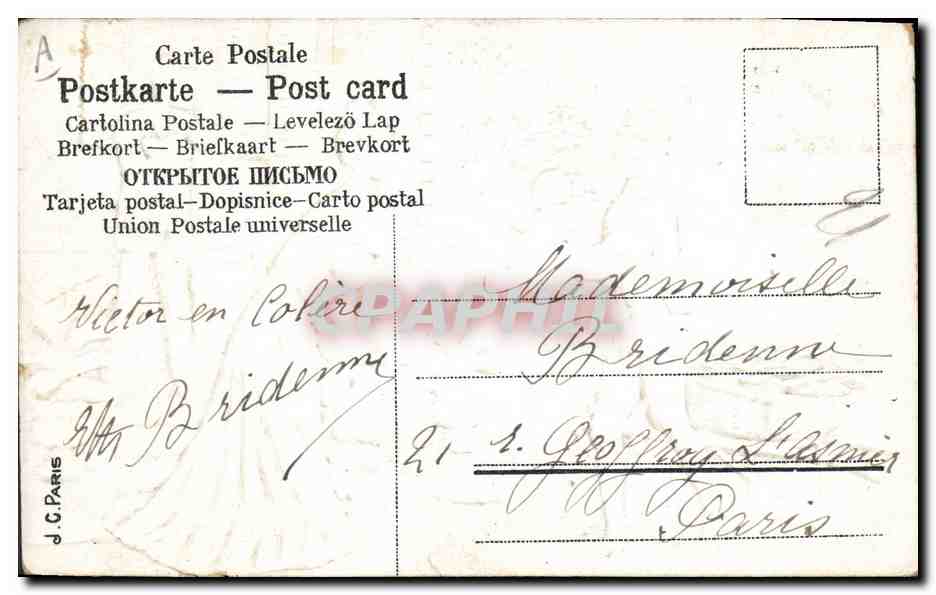 A
Carte Postale
Postkarte — Post card
Cartolina Postale — Levelezö Lap
Brefkort — Briefkaart — Brevkort
ОТКРЫТОЕ ПИСЬМО
Tarjeta postal—Dopisnice—Carto postal
Union Postale universelle
Victor en Colère
Bridenne
J.C. PARIS
CPAPHIL
Mademoiselle
Bridenne
21 r. Geoffroy L'Asnier
Paris